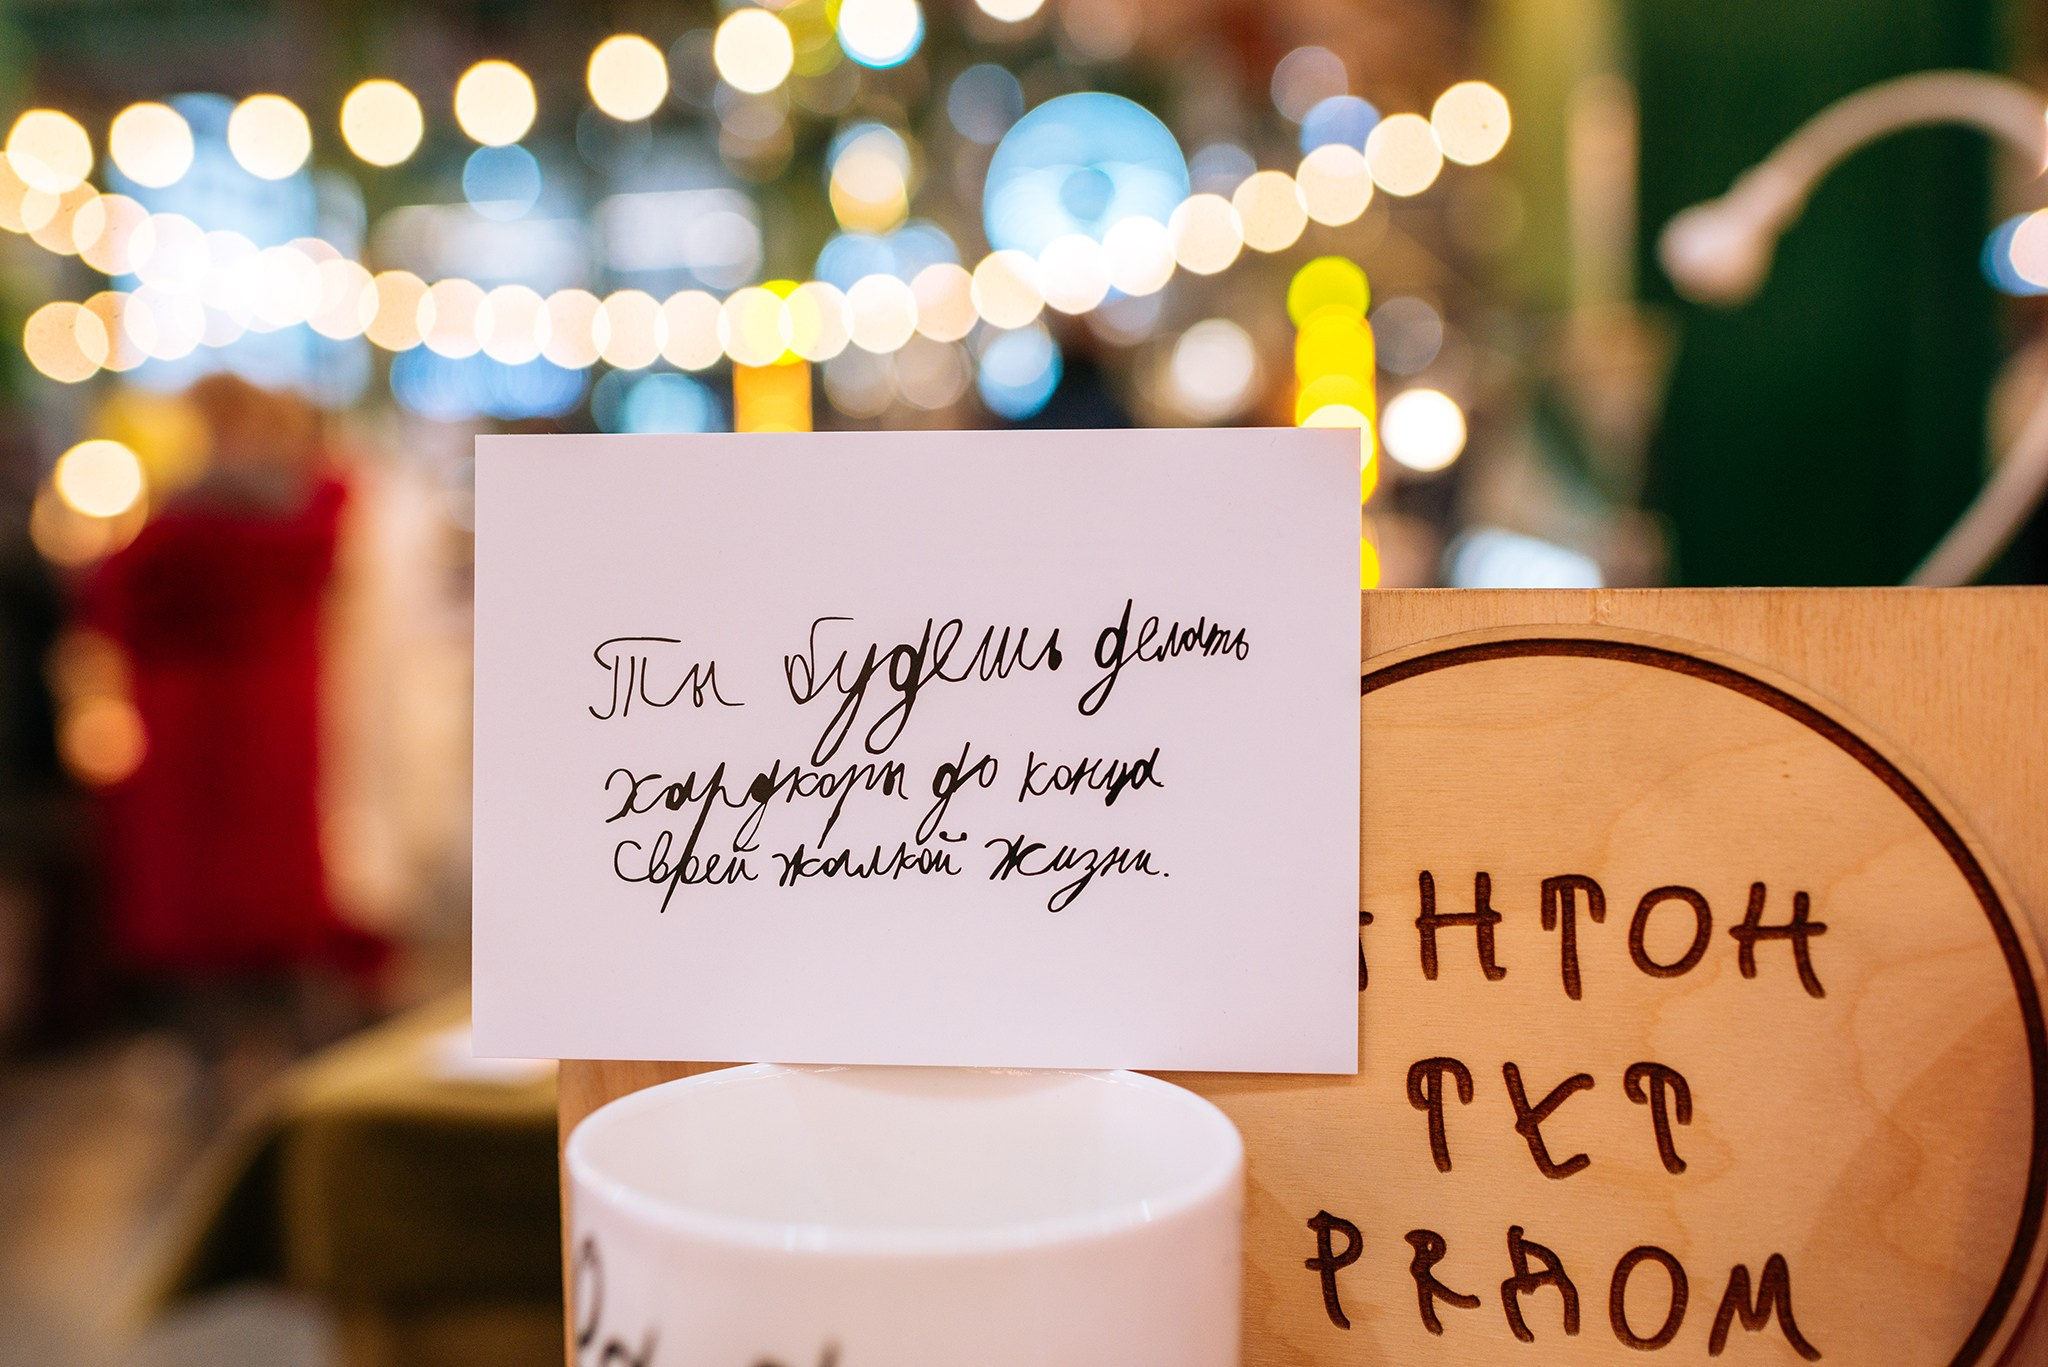 Ты будешь делать
хардкоры до конца
своей жалкой жизни.
НТОН
ТУТ
РЯДОМ